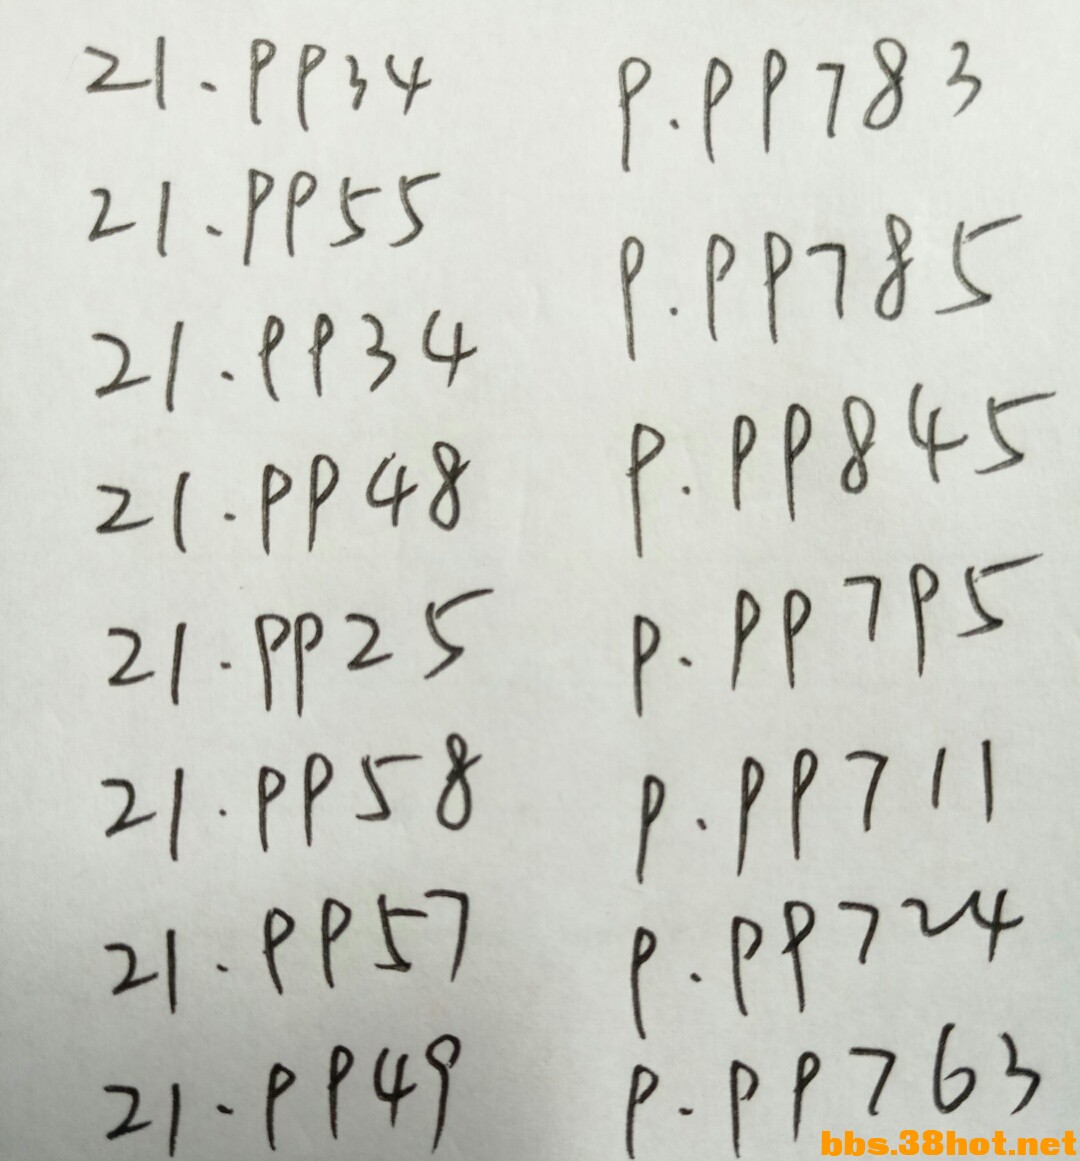 21.PP34
21.PP55
21.PP34
21.PP48
21.PP25
21.PP58
21.PP57
21.PP49
P.PP783
P.PP785
P.PP845
P.PP7P5
P.PP711
P.PP724
P.PP763
bbs.38hot.net